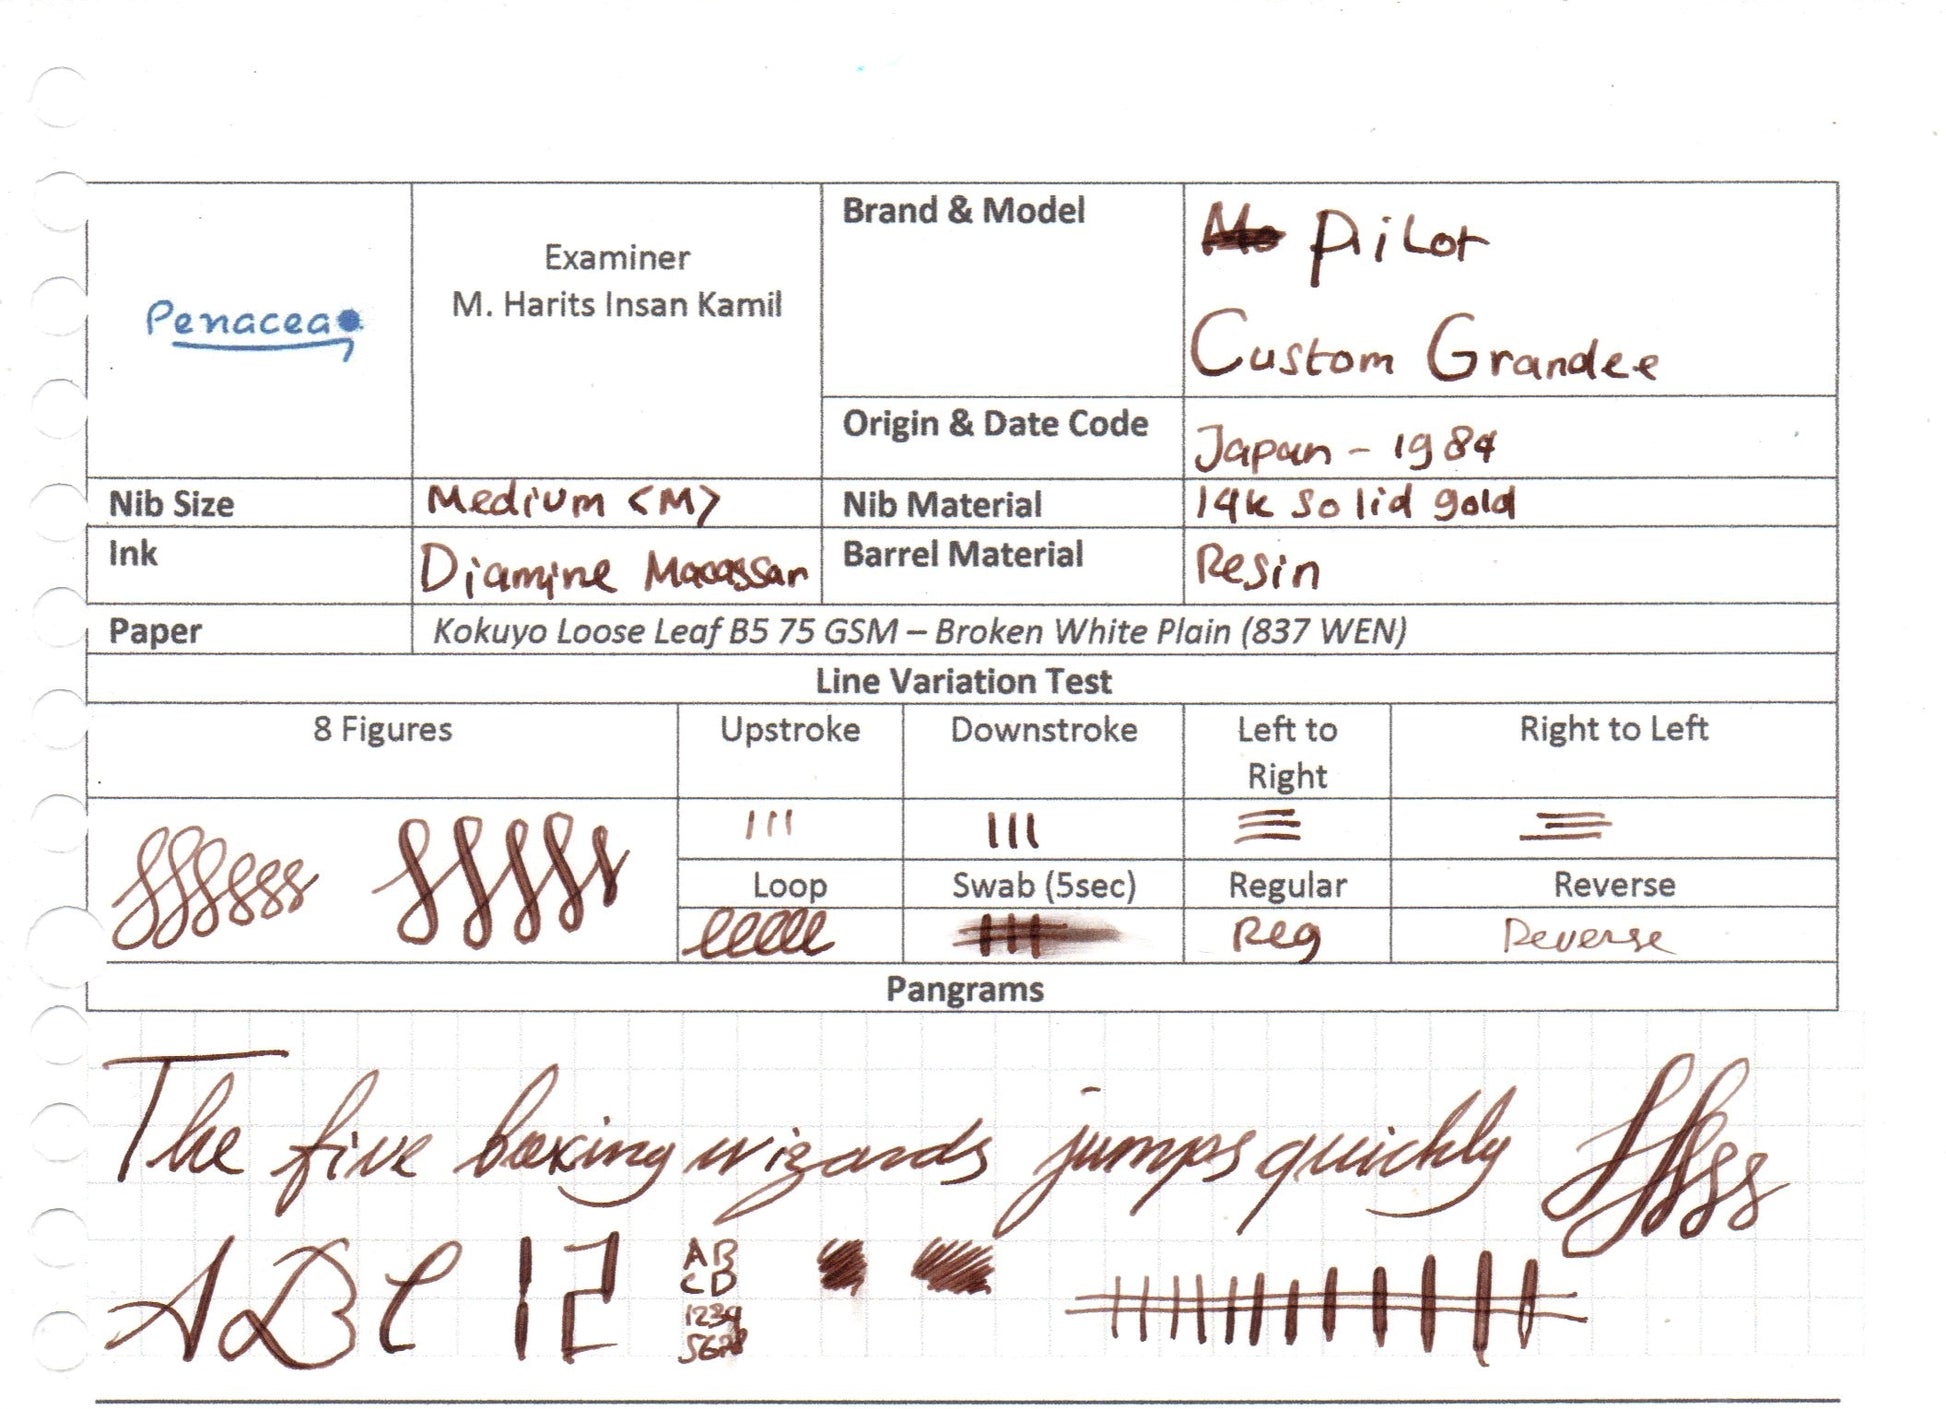 Penacea
Examiner
M. Harits Insan Kamil
Brand & Model
Pilot
Custom Grandee
Origin & Date Code
Japan - 1984
Nib Size
Medium <M>
Nib Material
14k solid gold
Ink
Diamine Macassar
Barrel Material
Resin
Paper
Kokuyo Loose Leaf B5 75 GSM – Broken White Plain (837 WEN)
Line Variation Test
8 Figures
Upstroke
Downstroke
Left to
Right
Right to Left
Loop
Swab (5sec)
Regular
Reverse
Reg
Reverse
Pangrams
The five boxing wizards jumps quickly
ABC 12
AB
CD
1234